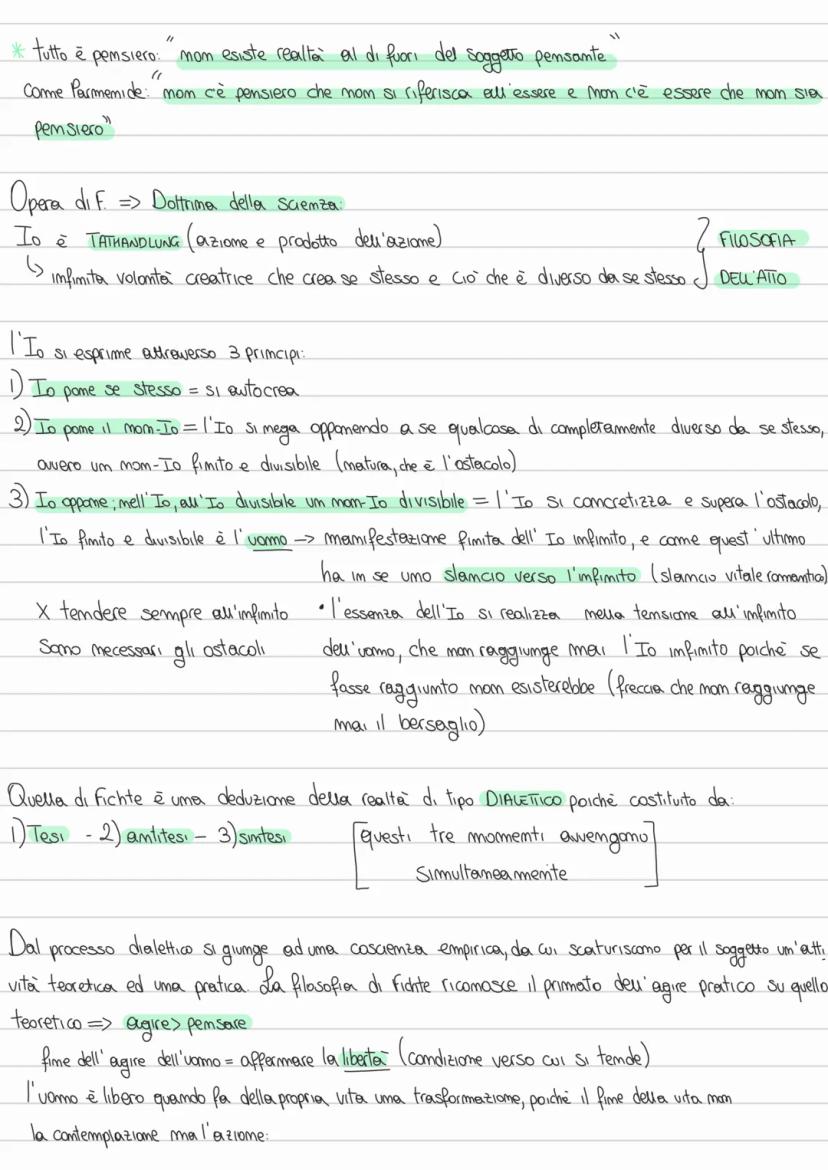 * tutto è pensiero: "non esiste realtà al di fuori del soggetto pensante"
Come Parmenide: "non c'è pensiero che non si riferisca all'essere e non c'è essere che non sia
pensiero"
Opera di F. => Dottrina della scienza:
Io è TATHANDLUNG (azione e prodotto dell'azione)
FILOSOFIA
↳ infinita volontà creatrice che crea se stesso e ciò che è diverso da se stesso
DELL'ATTO
l'Io si esprime attraverso 3 principi:
1) Io pone se stesso = si autocrea
2) Io pone il non-Io = l'Io si nega opponendo a se qualcosa di completamente diverso da se stesso,
ovvero un non-Io finito e divisibile (natura, che è l'ostacolo)
3) Io oppone; nell'Io, all'Io divisibile un non-Io divisibile = l'Io si concretizza e supera l'ostacolo,
l'Io finito e divisibile è l'uomo -> manifestazione finita dell'Io infinito, e come quest'ultimo
ha in se uno slancio verso l'infinito (slancio vitale romantico)
X tendere sempre all'infinito
sono necessari gli ostacoli
• l'essenza dell'Io si realizza nella tensione all'infinito
dell'uomo, che non raggiunge mai l'Io infinito poichè se
fosse raggiunto non esisterebbe (freccia che non raggiunge
mai il bersaglio)
Quella di Fichte è una deduzione della realtà di tipo DIALETTICO poichè costituito da:
1) Tesi - 2) antitesi - 3) sintesi
[questi tre momenti avvengono
simultaneamente]
Dal processo dialettico si giunge ad una coscienza empirica, da cui scaturiscono per il soggetto un'atti
vità teoretica ed una pratica. La filosofia di Fichte riconosce il primato dell'agire pratico su quello
teoretico => agire > pensare
fine dell'agire dell'uomo = affermare la libertà (condizione verso cui si tende)
l'uomo è libero quando fa della propria vita una trasformazione, poichè il fine della vita non
la contemplazione ma l'azione: